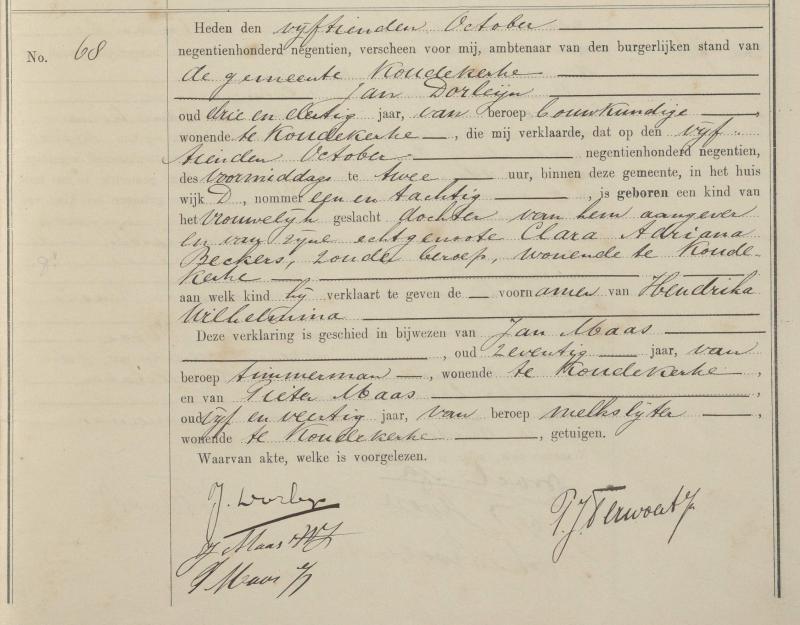 No. 68
Heden den vijftienden October
negentienhonderd negentien, verscheen voor mij, ambtenaar van den burgerlijken stand van
de gemeente Koudekerke
Jan Dorleijn
oud drie en dertig jaar, van beroep bouwkundige,
wonende te Koudekerke, die mij verklaarde, dat op den vijf-
tienden October negentienhonderd negentien,
des voormiddags te twee uur, binnen deze gemeente, in het huis
wijk D, nommer een en tachtig, is geboren een kind van
het vrouwelijk geslacht dochter van hem aangever
en van zijne echtgenoote Clara Adriana
Beckers, zonder beroep, wonende te Koude-
kerke
aan welk kind hij verklaart te geven de voornamen van Hendrika
Wilhelmina
Deze verklaring is geschied in bijwezen van Jan Maas
, oud zeventig jaar, van
beroep timmerman, wonende te Koudekerke,
en van Pieter Maas,
oud vijf en veertig jaar, van beroep melkslijter,
wonende te Koudekerke, getuigen.
Waarvan akte, welke is voorgelezen.
J. Dorleijn
Maas
P Maas